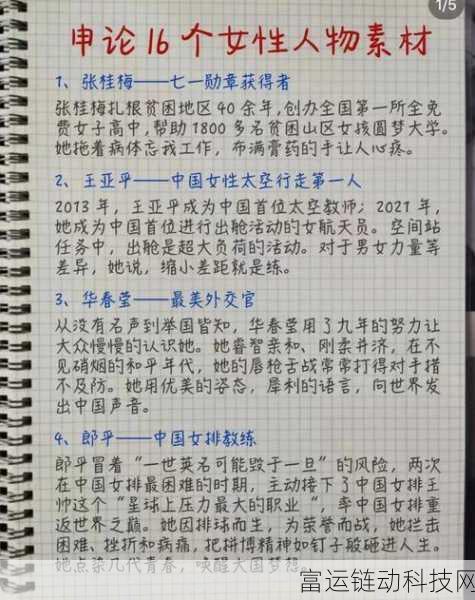 1/5
申论16个女性人物素材
1、张桂梅——七一勋章获得者
张桂梅扎根贫困地区40余年,创办全国第一所全免
费女子高中,帮助1800多名贫困山区女孩圆梦大学。
她拖着病体忘我工作，布满膏药的手让人心疼。
2、王亚平——中国女性太空行走第一人
2013年，王亚平成为中国首位太空教师；2021年，
她成为中国首位进行出舱活动的女航天员。空间站
任务中，出舱是超大负荷的活动。对于男女力量等
差异，她说，缩小差距就是练。
3、华春莹——最美外交官
从没有名声到举国皆知，华春莹用了九年的努力让
大众慢慢的认识她。她睿智亲和、刚柔并济，在不
见硝烟的和平年代，她的唇枪舌战常常打得对手措
不及防。她用优美的姿态，犀利的语言，向世界发
出中国声音。
4、郎平——中国女排教练
郎平冒着“一世英名可能毁于一旦”的风险，两次
在中国女排最困难的时期，主动接下了中国女排主
帅这个“星球上压力最大的职业“，率中国女排重
返世界之巅。她因排球而生，为荣誉而战，她拦击
困难、挫折和病痛，把拼博精神如钉子般砸进人生。
她点染几代青春，唤醒大国梦想。
富运链动科技网